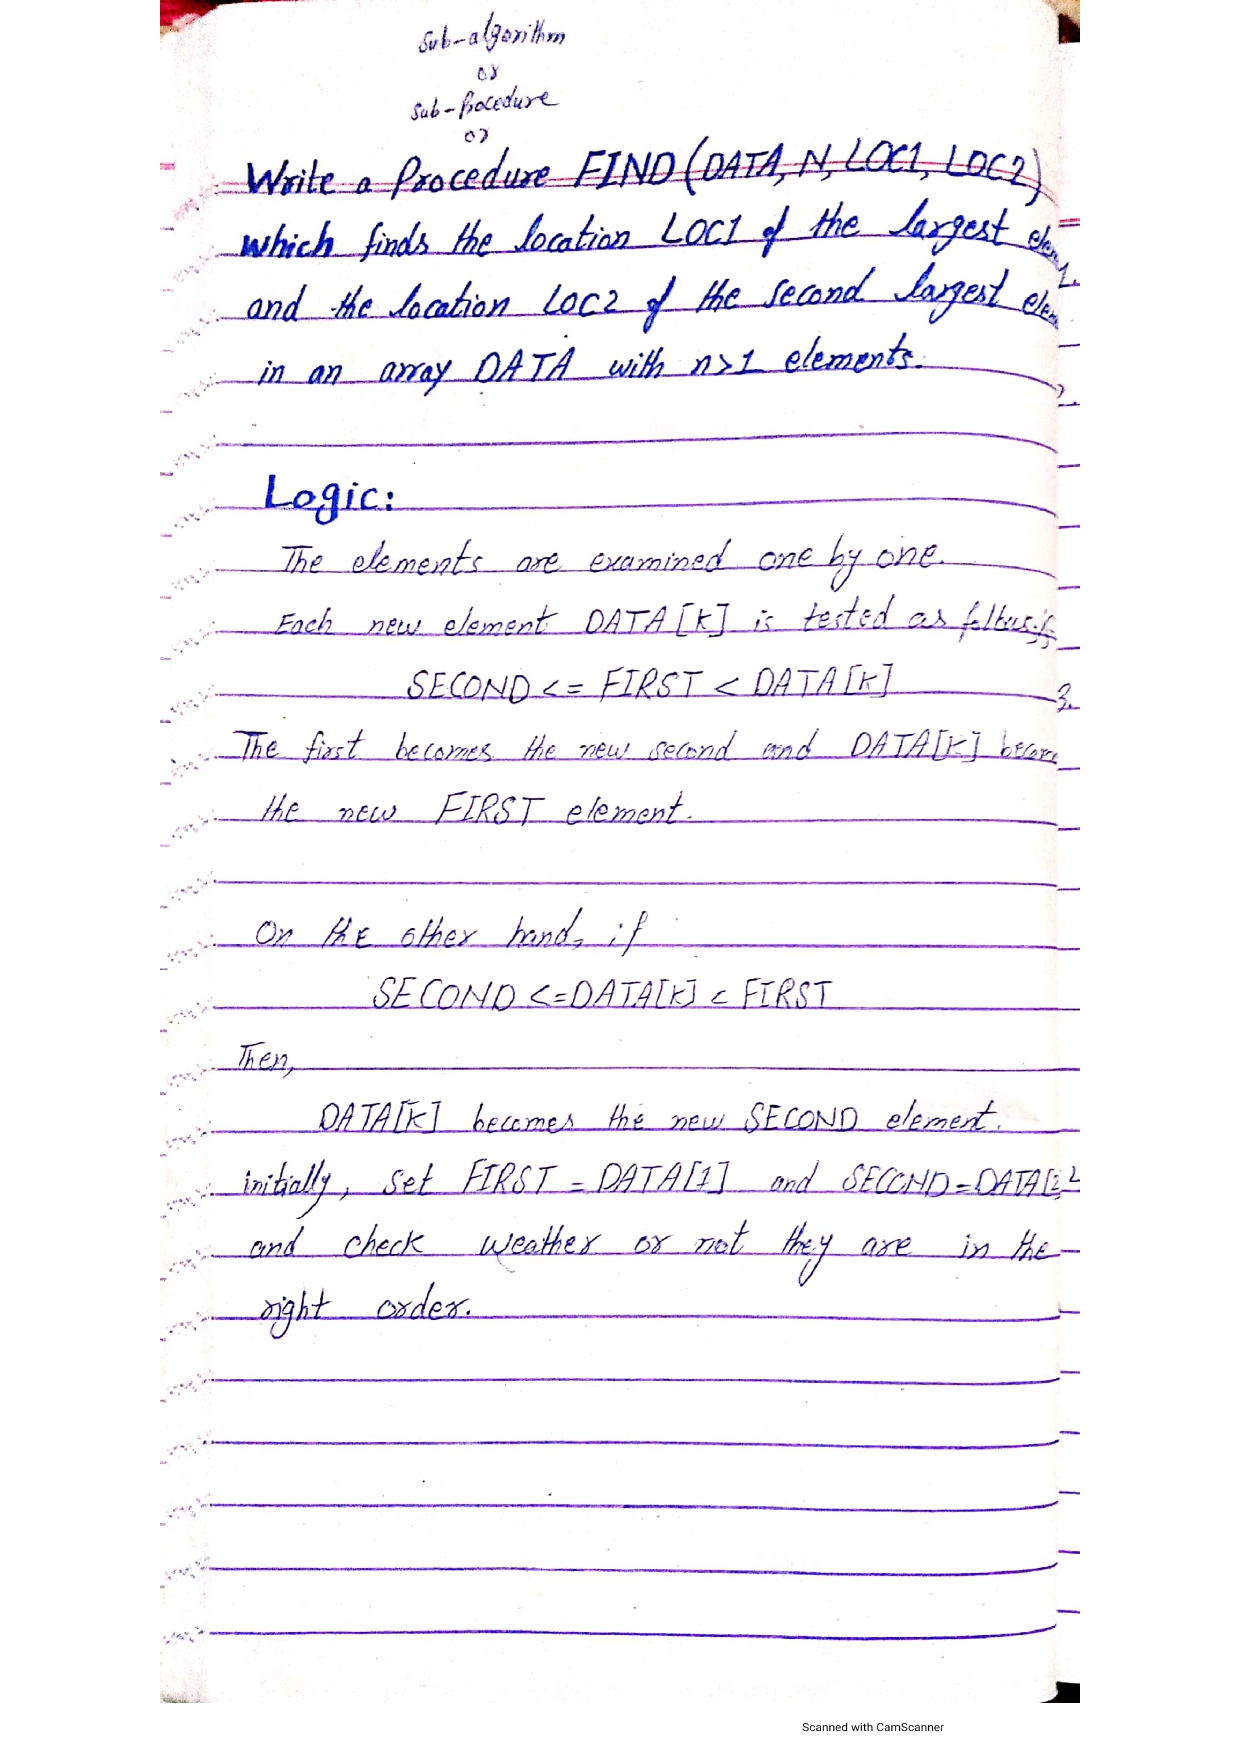 Sub-algorithm
or
Sub-Procedure
or
Write a Procedure FIND(DATA, N, LOC1, LOC2)
which finds the location LOC1 of the largest
and the location LOC2 of the second largest
in an array DATA with n>1 elements.
Logic:
The elements are examined one by one.
Each new element DATA[K] is tested as
SECOND <= FIRST < DATA[K]
3.
The first becomes the new second and DATA[K]
the new FIRST element.
On the other hand, if
SECOND <=DATA[K] < FIRST
Then,
DATA[K] becomes the new SECOND element.
initially, set FIRST = DATA[1] and SECOND=DATA[2]
and check weather or not they are in the
right order.
Scanned with CamScanner